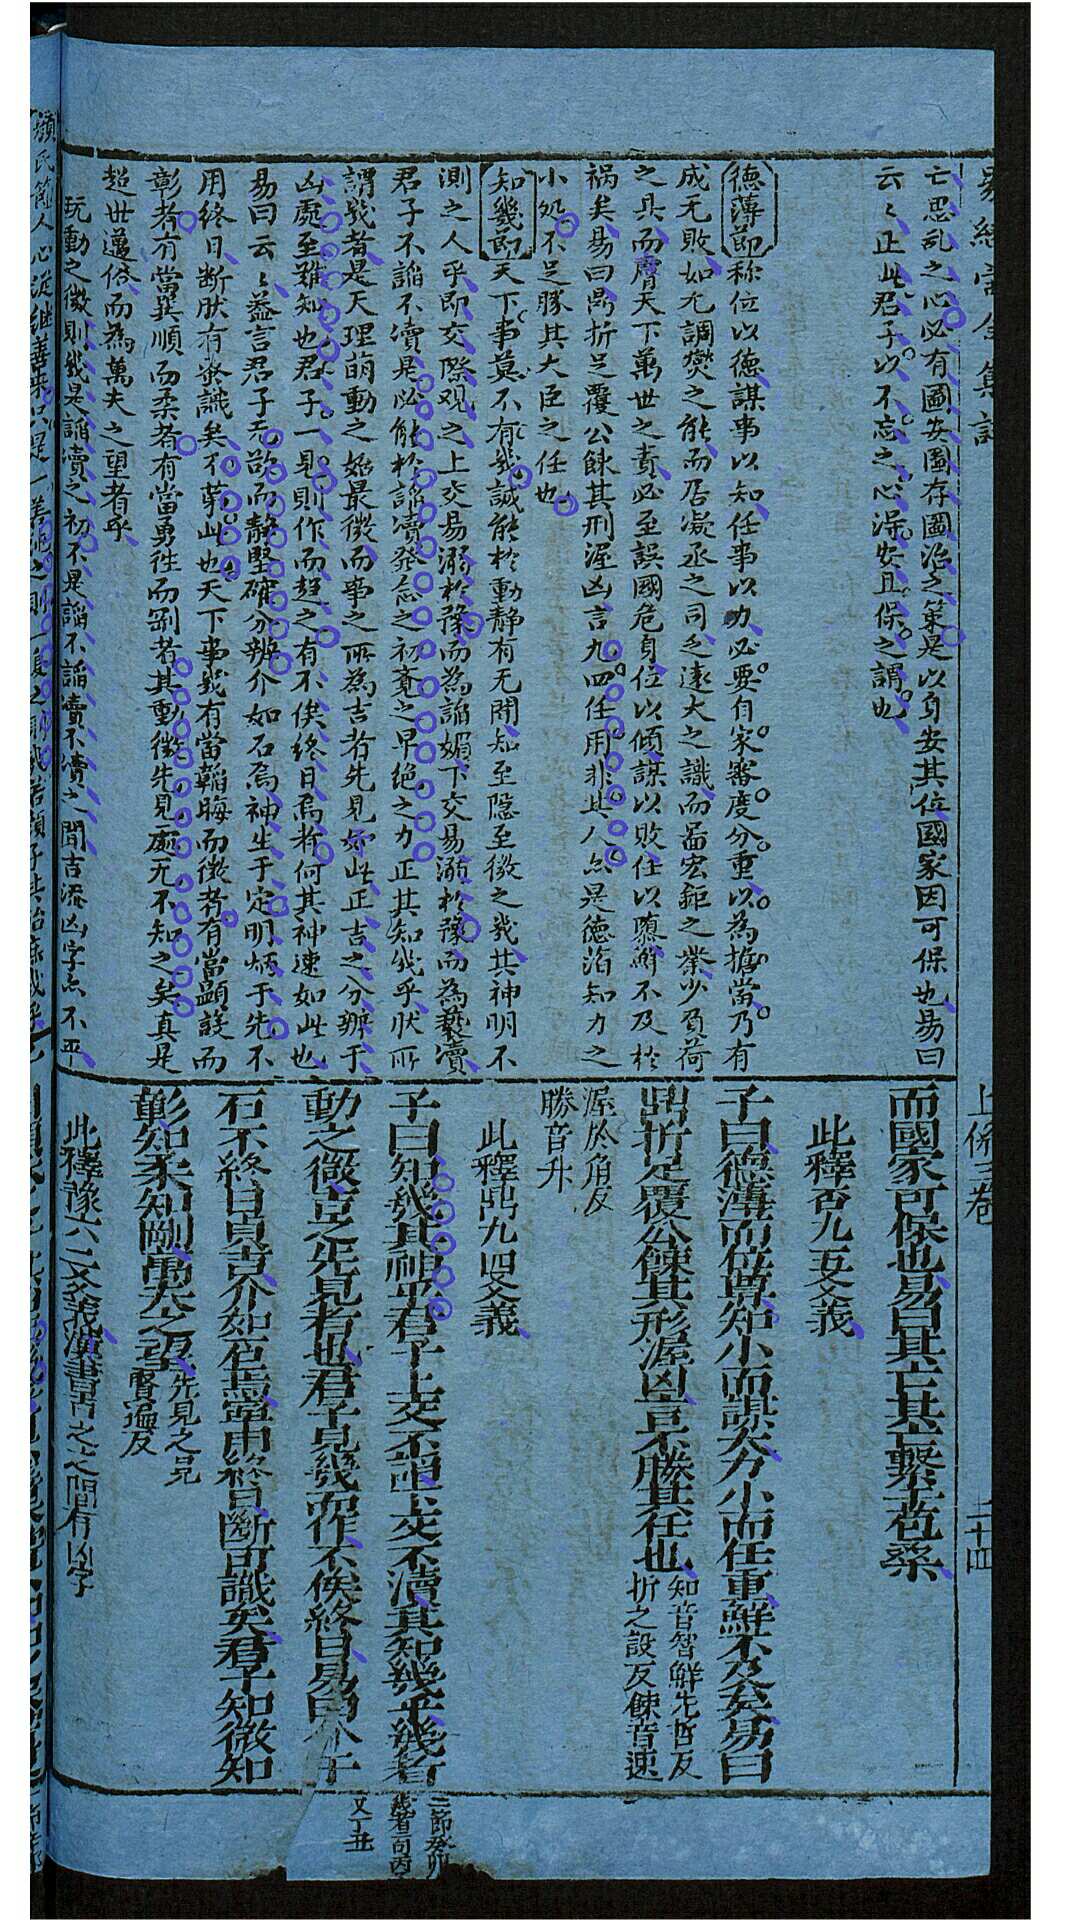 亡思乱之心必有圖安圖存圖治之策是以身安其位國家因可保也易曰
云云正此君子以不忘之心深安且保之謂也
德薄節称位以德謀事以知任事以力必要自家審度分重以為擔當乃有
成无敗如尢調爕之能而居凝丞之司乏遠大之識而啚宏鉅之業少負荷
之具而膺天下萬世之責必至誤國危身位以傾謀以敗任以隳鮮不及於
禍矣易曰鼎折足覆公餗其刑渥凶言九四任用非其人点是德滔知力之
小処不足勝其大臣之任也
知幾節天下事莫不有幾誠能於動静有无開知至隠至微之幾其神明不
測之人乎即交際观之上交易溺於豫而為諂媚下交易溺於豫而為褻瀆
君子不諂不瀆是必能於諂瀆発念之初竟之早絶之力正其知幾乎状所
謂幾者是天理萌動之始最微而事之所為吉者先見妙此正吉之分辨于
凶處至難知也君子一見則作而趋之有不俟終日焉者何其神速如此也
易曰云云益言君子无欲而静堅確分辨介如石焉神生于定明炳于先不
用終日断肰有发識矣不苐此也天下事幾有當韜晦而微者有當顯設而
彰者有當巽順而柔者有當勇往而剛者其動微先見處无不知之矣真是
超世邁俗而為萬夫之望者乎
玩動之微則幾是諂瀆之初不是諂不諂瀆不瀆之間吉流凶字点不平
而國家可保也易曰其亡其亡繫于苞桑
此釋否九五爻義
子曰德薄而位尊知小而謀大力小而任重鮮不及矣易曰
鼎折足覆公餗其形渥凶言不勝其任也知音智鮮先哲反
折之設反餗音速
渥於角反
勝音升
此釋鼎九四爻義
子曰知幾其神乎君子上交不諂下交不瀆其知幾乎幾者
動之微吉之先見者也君子見幾而作不俟終日易曰介于
石不終日貞吉介如石焉寧用終日斷可識矣君子知微知
彰知柔知剛萬夫之望先見之見
賢遍反
此釋豫六二爻義漢書吉之之間有凶字
二節癸卯
幾者一句丙
又丁丑
上係三卷
二十四